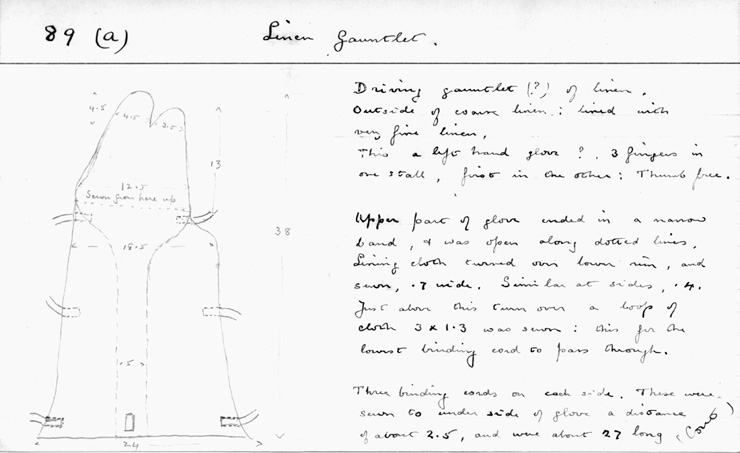 89 (a)
Linen Gauntlet.
Driving gauntlet (?) of linen.
Outside of coarse linen : lined with
very fine linen.
This a left hand glove ?. 3 fingers in
one stall, first in the other : Thumb free.
Upper part of glove ended in a narrow
band, & was open along dotted lines.
Lining cloth turned over lower rim, and
sewn, .7 wide. Similar at sides, .4.
Just above this turn over a loop of
cloth 3 x 1.3 was sewn : this for the
lowest binding cord to pass through.
Three binding cords on each side. These were
sewn to under side of glove a distance
of about 2.5, and were about 27 long
4.5
4.5
3.5
13
12.5
Sewn from here up
38
18.5
.5
24